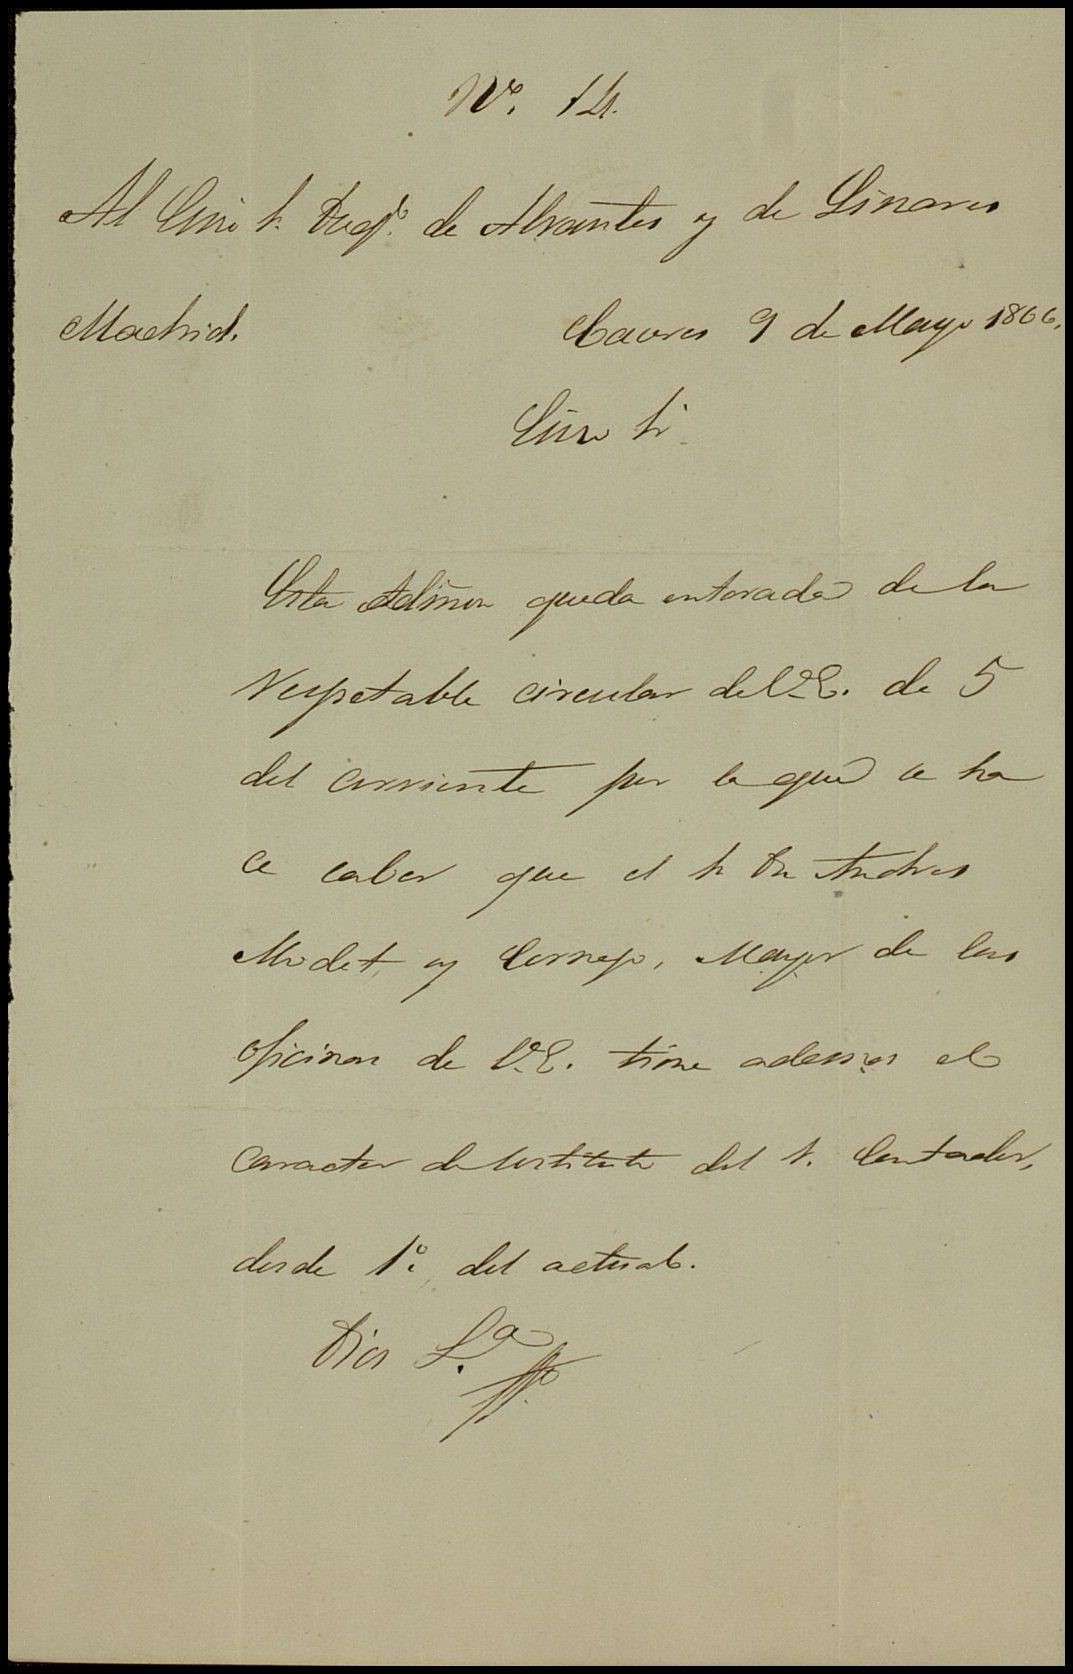 Nº. 14.
Al Exmo S. Duqe. de Abrantes y de Linares
Madrid. Caceres 9 de Mayo 1866.
Exmo Sr.
Esta Admon queda enterada de la
respetable circular de V.E. de 5
del corriente por la que se ha
ce saber que el Sr Dn Andres
Modet y Cornejo, Mayor de las
oficinas de V.E. tiene ademas el
caracter de sostituto del S. Contador,
desde 1º. del actual.
Dios